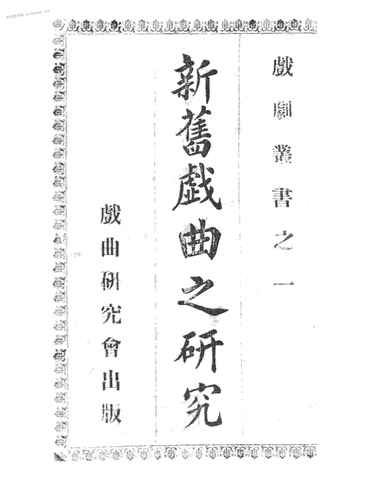 戲劇叢書之一
新舊戲曲之研究
戲曲研究會出版